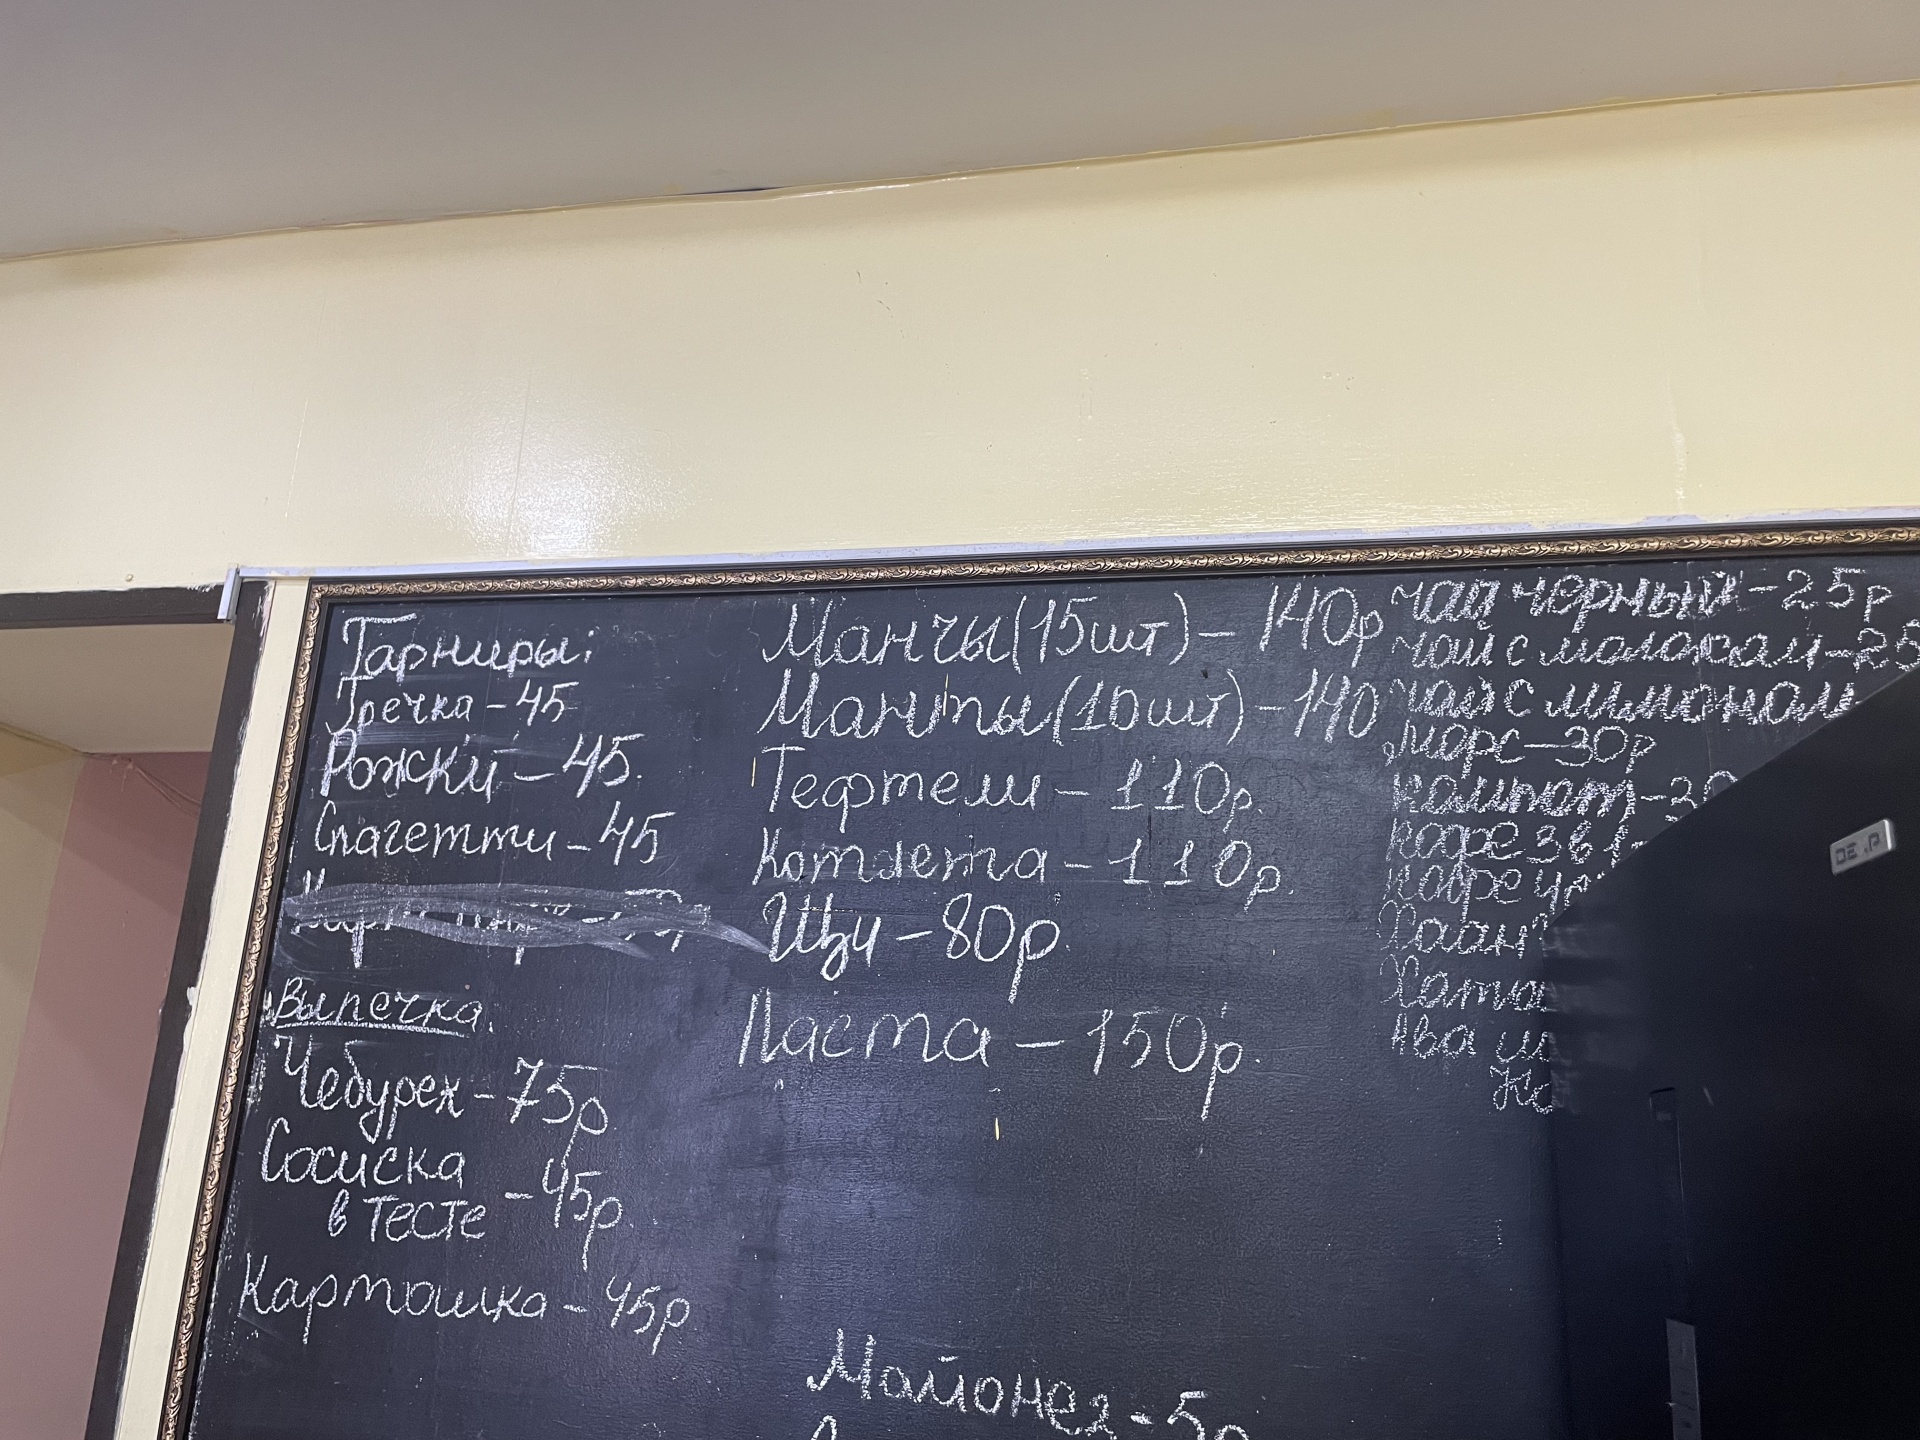 Гарниры:
Гречка - 45
Рожки - 45.
Спагетти - 45
Выпечка.
Чебурек - 75р
Сосиска
в тесте - 45р.
Картошка - 45р
Манчы (15шт) - 140р
Манты (10шт) - 140
Тефтели - 110р.
Котлета - 110р.
Щи - 80р.
Паста - 150р.
Майонез - 5р
чай черный - 25р
чай с молоком - 25
чай с лимоном
Морс - 30р
компот - 30
кофе 3 в 1 -
кофе
Хаан
Ава